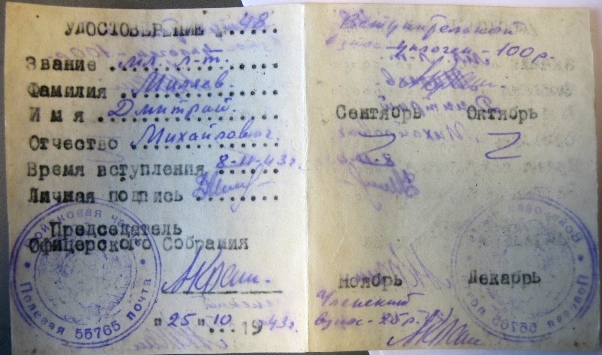 УДОСТОВЕРЕНИЕ № 48
Звание мл. л-т.
Фамилия
Имя Дмитрий.
Отчество Михайлович.
Время вступления 8-11-43г.
Личная подпись
Председатель
Офицерского Собрания
Войсковая часть
Полевая почта 55765
"25" 10 1943г.
Вступительной
взнос уплочен - 100р.
Сентябрь Октябрь
Ноябрь Декабрь
Членский
взнос - 25р.